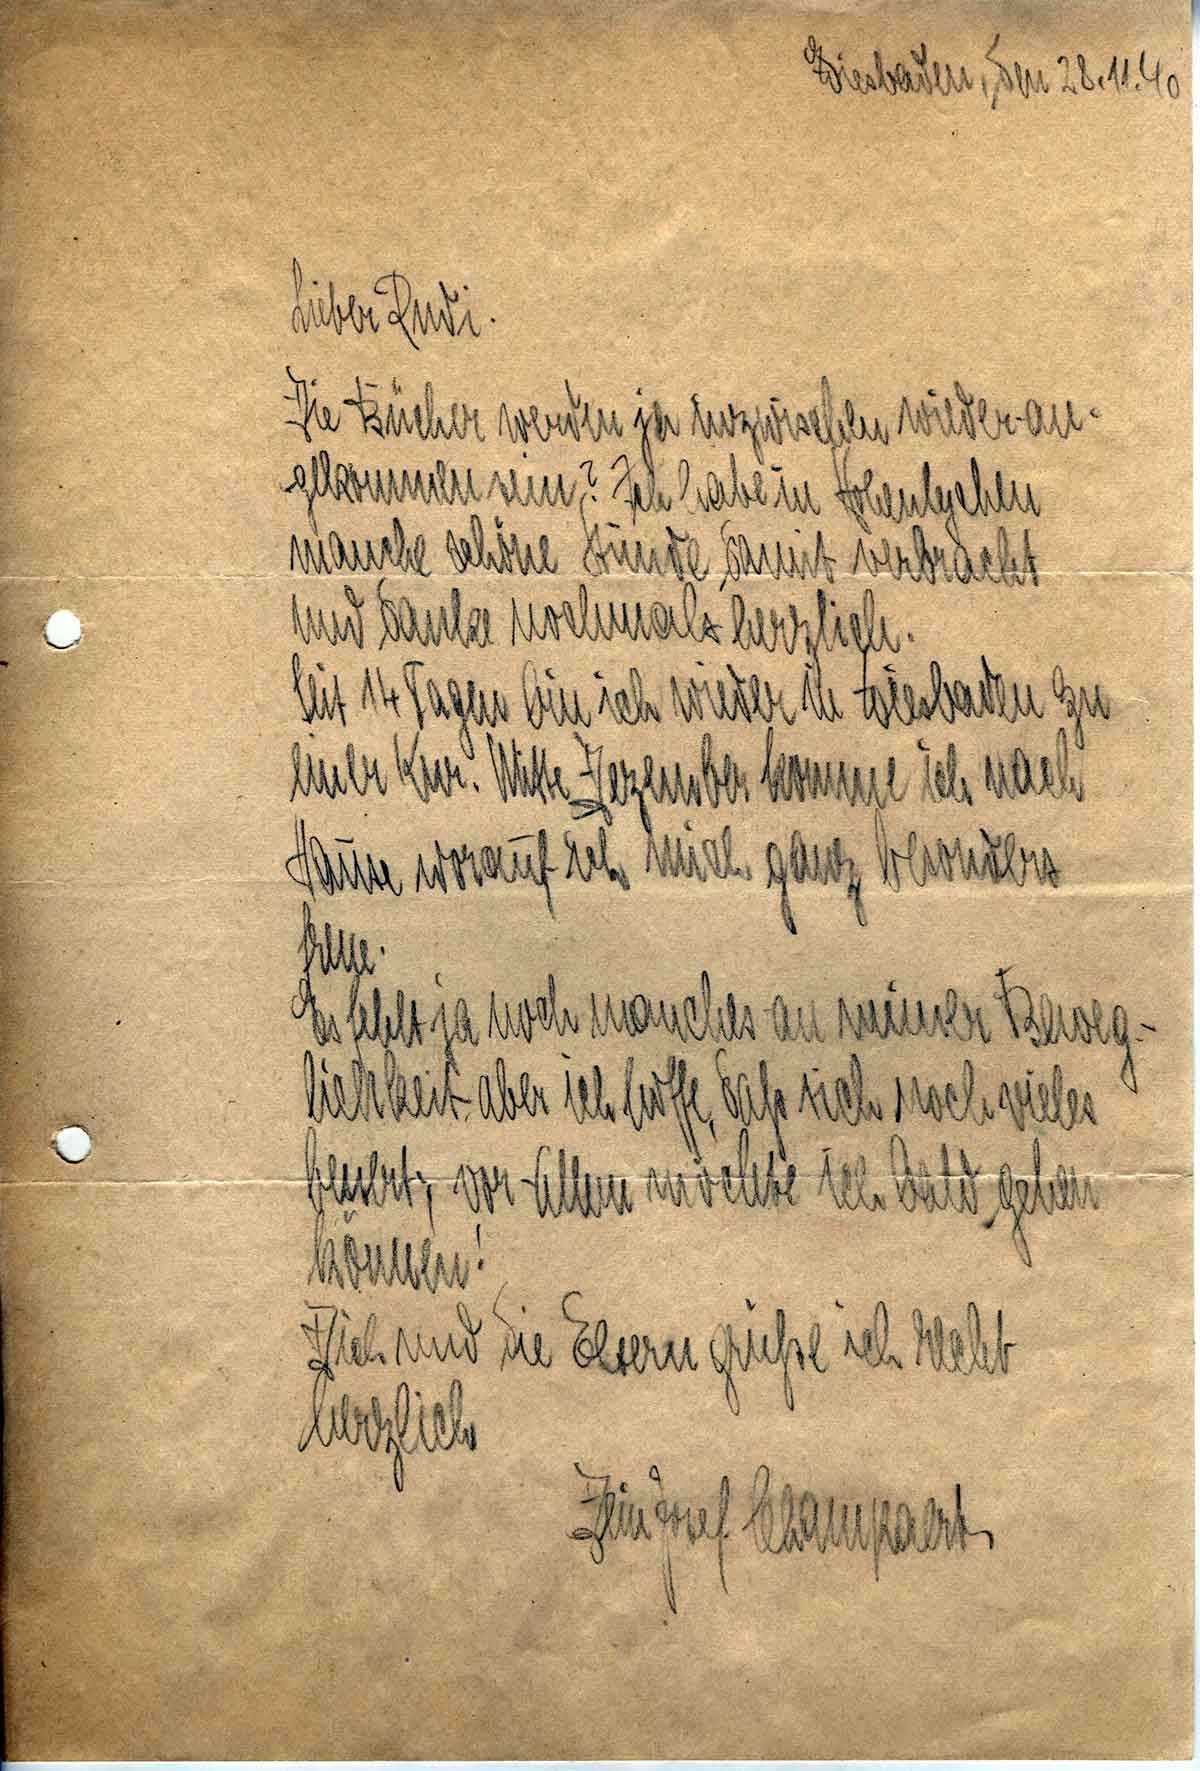 Wiesbaden, den 28.11.40
Lieber Rudi.
Die Bücher werden ja inzwischen wieder an-
gekommen sein? Ich habe in Hohenlychen
manche schöne Stunde damit verbracht
und danke nochmals herzlich.
Seit 14 Tagen bin ich wieder in Wiesbaden zu
einer Kur. Mitte Dezember komme ich nach
Hause worauf ich mich ganz besonders
freue.
Es fehlt ja noch manches an meiner Beweg-
lichkeit aber ich hoffe, daß sich noch vieles
bessert, vor Allem möchte ich bald gehen
können!
Dich und die Eltern grüße ich recht
herzlich
Dein Josef